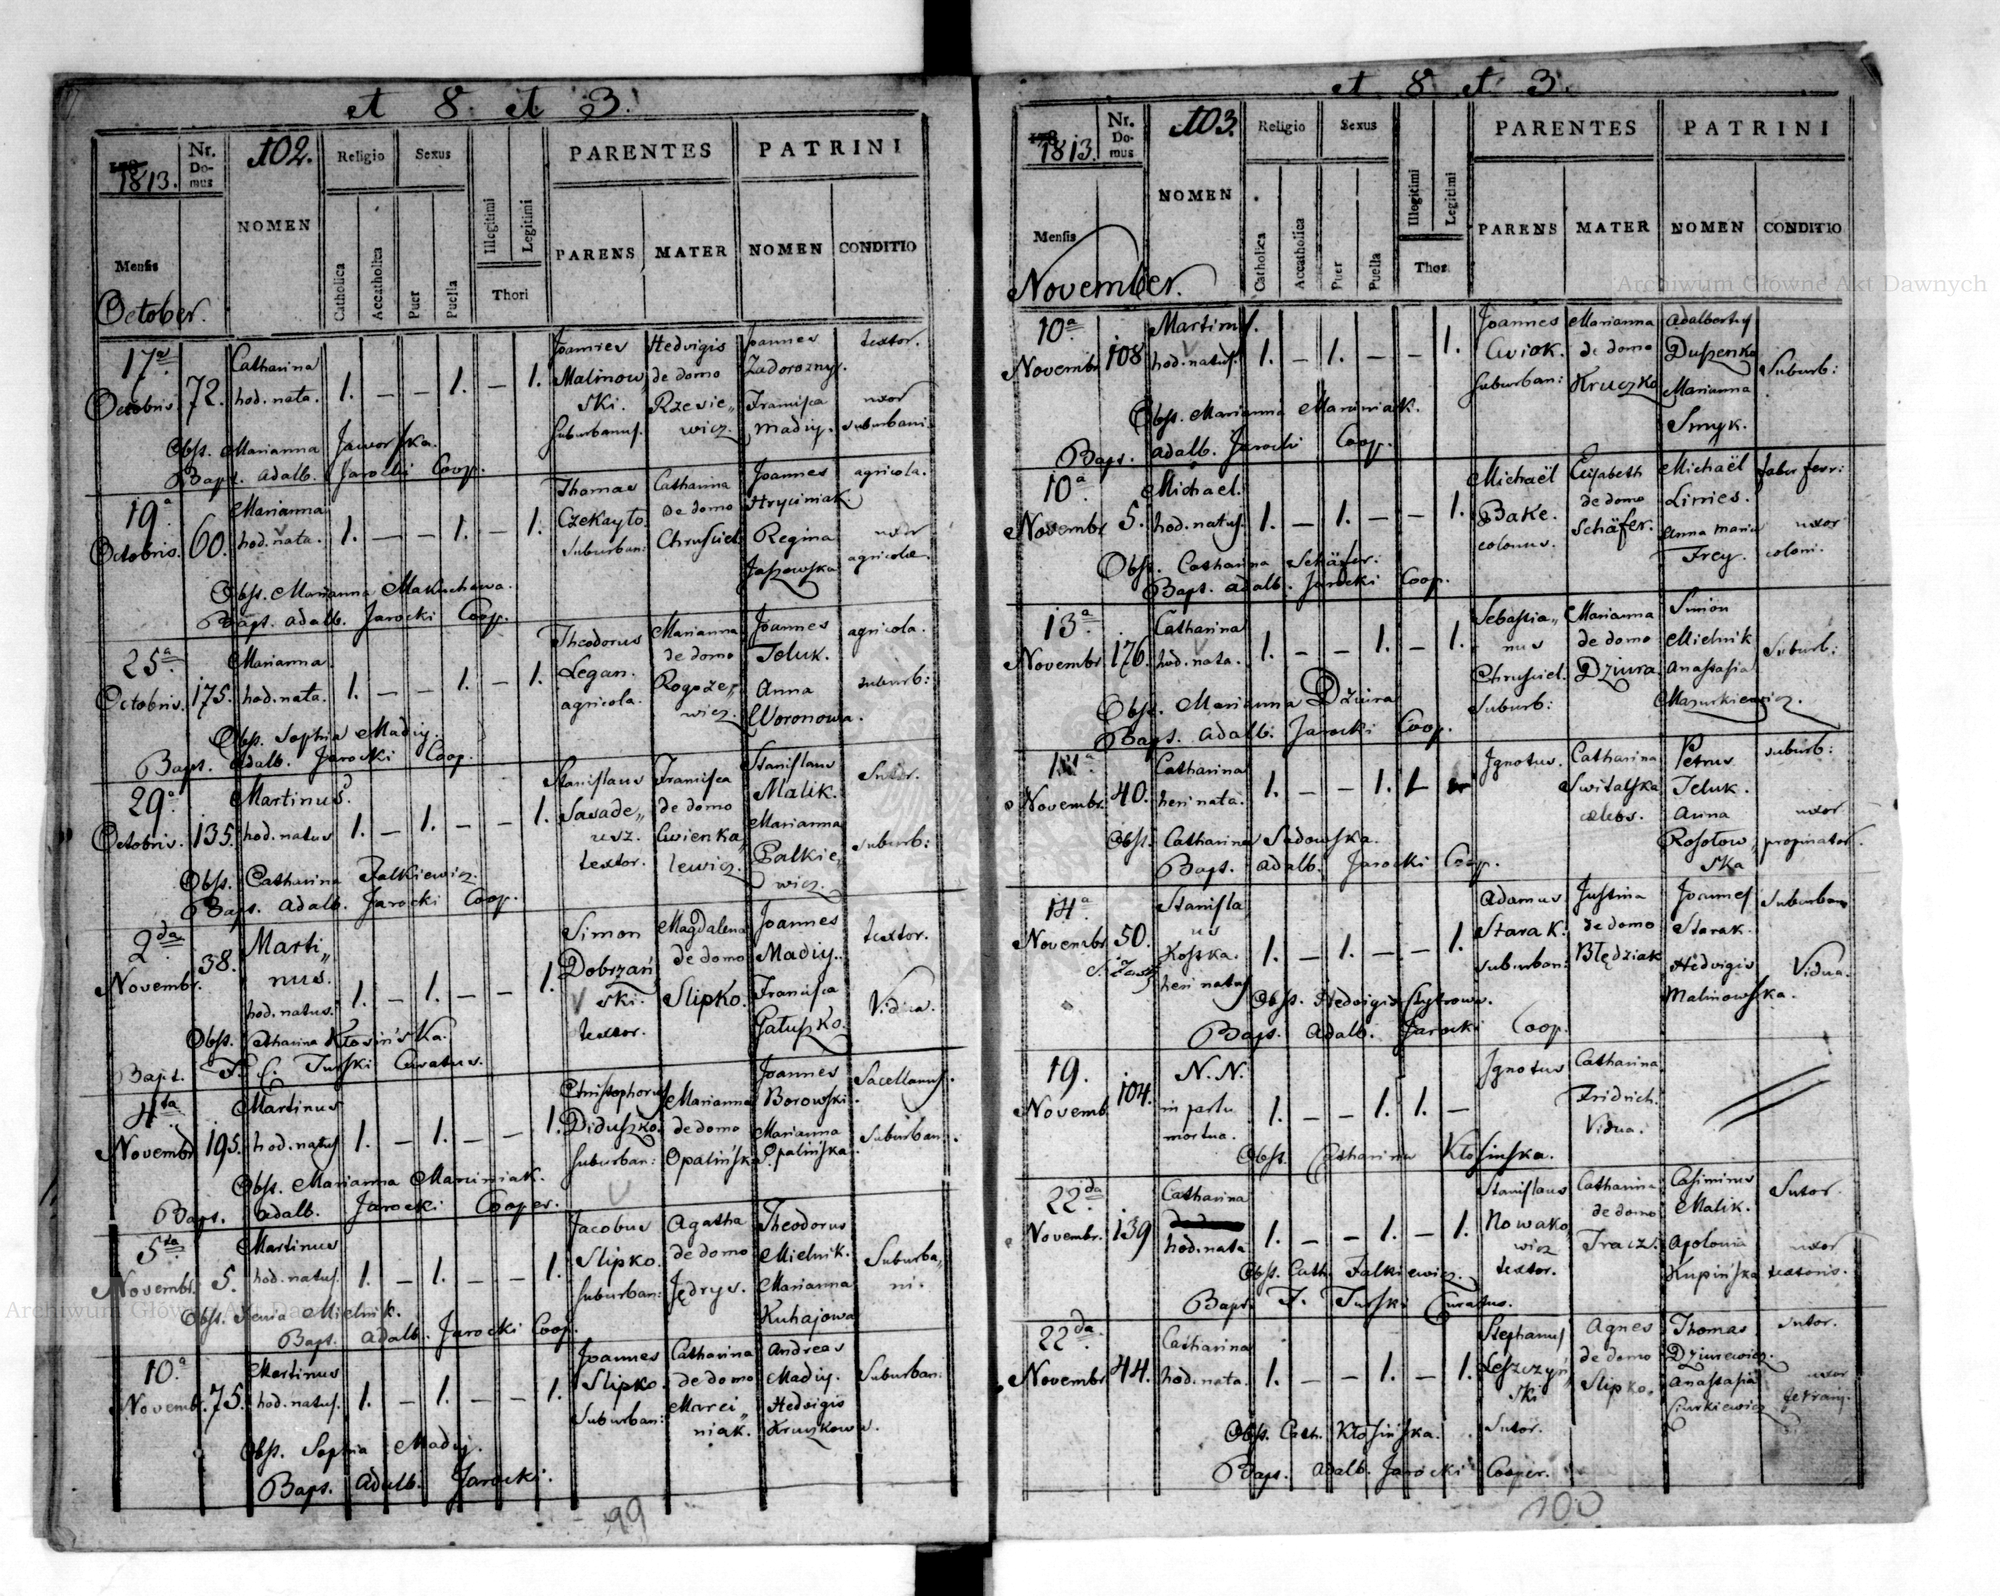 A 8 A 3.
1813.
Nr. Domus
102.
NOMEN
Religio
Sexus
Catholica
Accatholica
Puer
Puella
Illegitimi
Legitimi
Thori
PARENTES
PARENS
MATER
PATRINI
NOMEN
CONDITIO
Mensis
October.
17a Octobris
72.
Catharina hod. nata.
1. – – 1. – 1.
Joannes Malinowski. Suburbanus.
Hedvigis de domo Rzesie„wicz.
Joannes Zadorozny. Francisca Madiy.
textor. uxor suburbani
Obst. Marianna Jaworska.
Baps. Adalb. Jarocki Coop.
19a Octobris.
60.
Marianna hod. nata.
1. – – 1. – 1.
Thomas Czekayło. Suburban:
Catharina de domo Chrusciel
Joannes Hryciniak Regina Jaszowska
agricola. uxor agricolae.
Obst. Marianna Makuchowa.
Bapt. Adalb. Jarocki Coop.
25a Octobris.
175.
Marianna hod. nata.
1. – – 1. – 1.
Theodorus Legan. agricola.
Marianna de domo Rogoze„wicz.
Joannes Teluk. Anna Woronowa.
agricola. suburb:
Obst. Sophia Madiy.
Baps. Adalb. Jarocki Coop.
29a Octobris.
135.
Martinus hod. natus
1. – 1. – – 1.
Stanislaus Sasade„usz. textor.
Francisca de domo Cwienka„lewicz.
Stanislaus Malik. Marianna Falkie„wicz.
Sutor. suburb:
Obst. Catharina Falkiewicz.
Baps. Adalb. Jarocki Coop.
2da Novembr.
38.
Marti„nus. hod. natus.
1. – 1. – – 1.
Simon Dobrzański. textor.
Magdalena de domo Slipko.
Joannes Madiy. Francisca Gałuszko.
textor. Vidua.
Obst. Catharina Kłosińska.
Bapt. F. C. Turski Curatus.
4ta Novembr
195.
Martinus hod. natus
1. – 1. – – 1.
Christophorus Diduszko. suburban:
Marianna de domo Opalińska
Joannes Borowski. Marianna Opalińska.
Sacellanus. suburban:
Obst. Marianna Marciniak.
Baps. Adalb. Jarocki Cooper.
5ta Novembr.
5.
Martinus hod. natus.
1. – 1. – – 1.
Jacobus Slipko. suburban:
Agatha de domo Jędrys.
Theodorus Mielnik. Marianna Kuhajowa
Suburba„ni.
Obst. Xenia Mielnik.
Baps. Adalb. Jarocki Coop.
10a Novembr.
75.
Martinus hod. natus.
1. – 1. – – 1.
Joannes Slipko. Suburban:
Catharina de domo Marci„niak.
Andreas Madiy. Hedvigis Kruczkowa.
Suburban:
Obst. Sophia Madiy.
Baps. Adalb. Jarocki.
99
A 8 A 3.
1813.
Nr. Domus
103.
NOMEN
Religio
Sexus
Catholica
Accatholica
Puer
Puella
Illogitimi
Legitimi
Thori
PARENTES
PARENS
MATER
PATRINI
NOMEN
CONDITIO
Mensis
November.
Archiwum Główne Akt Dawnych
10a Novembr.
108
Martinus. hod. natus.
1. – 1. – – 1.
Joannes Cwiok. suburban:
Marianna de domo Kruczko
Adalbertus Duszenko Marianna Smyk.
Suburb:
Obst. Marianna Marciniak.
Baps. Adalb. Jarocki Coop.
10a Novembr
5.
Michael. hod. natus.
1. – 1. – – 1.
Michaël Bake. colonus.
Elisabeth de domo Schäfer.
Michaël Linies. Anna Maria Frey.
faber ferr: uxor coloni.
Obst. Catharina Schäfer.
Baps. Adalb. Jarocki Coop.
13a Novembr
176.
Catharina hod. nata.
1. – – 1. – 1.
Sebastia„nus Chrusciel. suburb:
Marianna de domo Dziura
Simon Mielnik Anastasia Mazurkiewicz.
suburb:
Obst. Marianna Dziura
Baps. Adalb. Jarocki Coop.
Novembr.
40.
Catharina heri nata.
1. – – 1. 1.
Ignotus.
Catharina Switalska caelebs.
Petrus Teluk. Anna Rosołow„ska
suburb: uxor propinator.
Obst. Catharina Sadowska.
Baps. Adalb. Jarocki Coop.
14a Novembr
50.
Stanislaus Kostka. heri natus
1. – 1. – – 1.
Adamus Starak. suburban:
Justina de domo Błędziak
Joannes Starak. Hedvigis Malinowska.
Suburban Vidua.
Obst. Hedvigis
Baps. Adalb. Jarocki Coop.
19. Novemb.
104.
N. N. in partu mortua.
1. – – 1. 1. –
Ignotus
Catharina Fridrich. Vidua.
Obst. Catharina Kłosińska.
22da Novembr.
139
Catharina hod. nata
1. – – 1. – 1.
Stanislaus Nowako„wicz textor.
Catharina de domo Tracz.
Casimirus Malik. Apolonia Kupińska
Sutor. uxor textoris.
Obst. Cath. Falkiewicz.
Baps. F. Turski Curatus.
22da Novembr
44.
Catharina hod. nata.
1. – – 1. – 1.
Stephanus Leszczyński Sutor.
Agnes de domo Slipko.
Thomas Dziurewicz. Anastasia Ciurkiewicz
sutor. uxor
Obst. Cath. Kłosińska.
Baps. Adalb. Jarocki Cooper.
100
Archiwum Główne Akt Dawnych